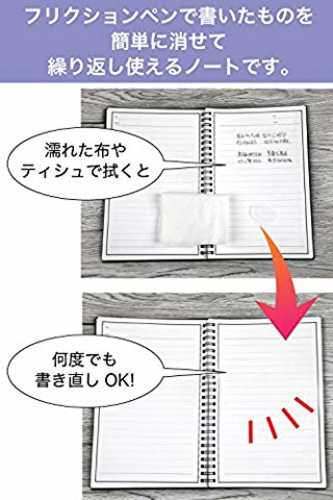 フリクションペンで書いたものを
簡単に消せて
繰り返し使えるノートです。
濡れた布や
ティシュで拭くと
何度でも
書き直しOK!